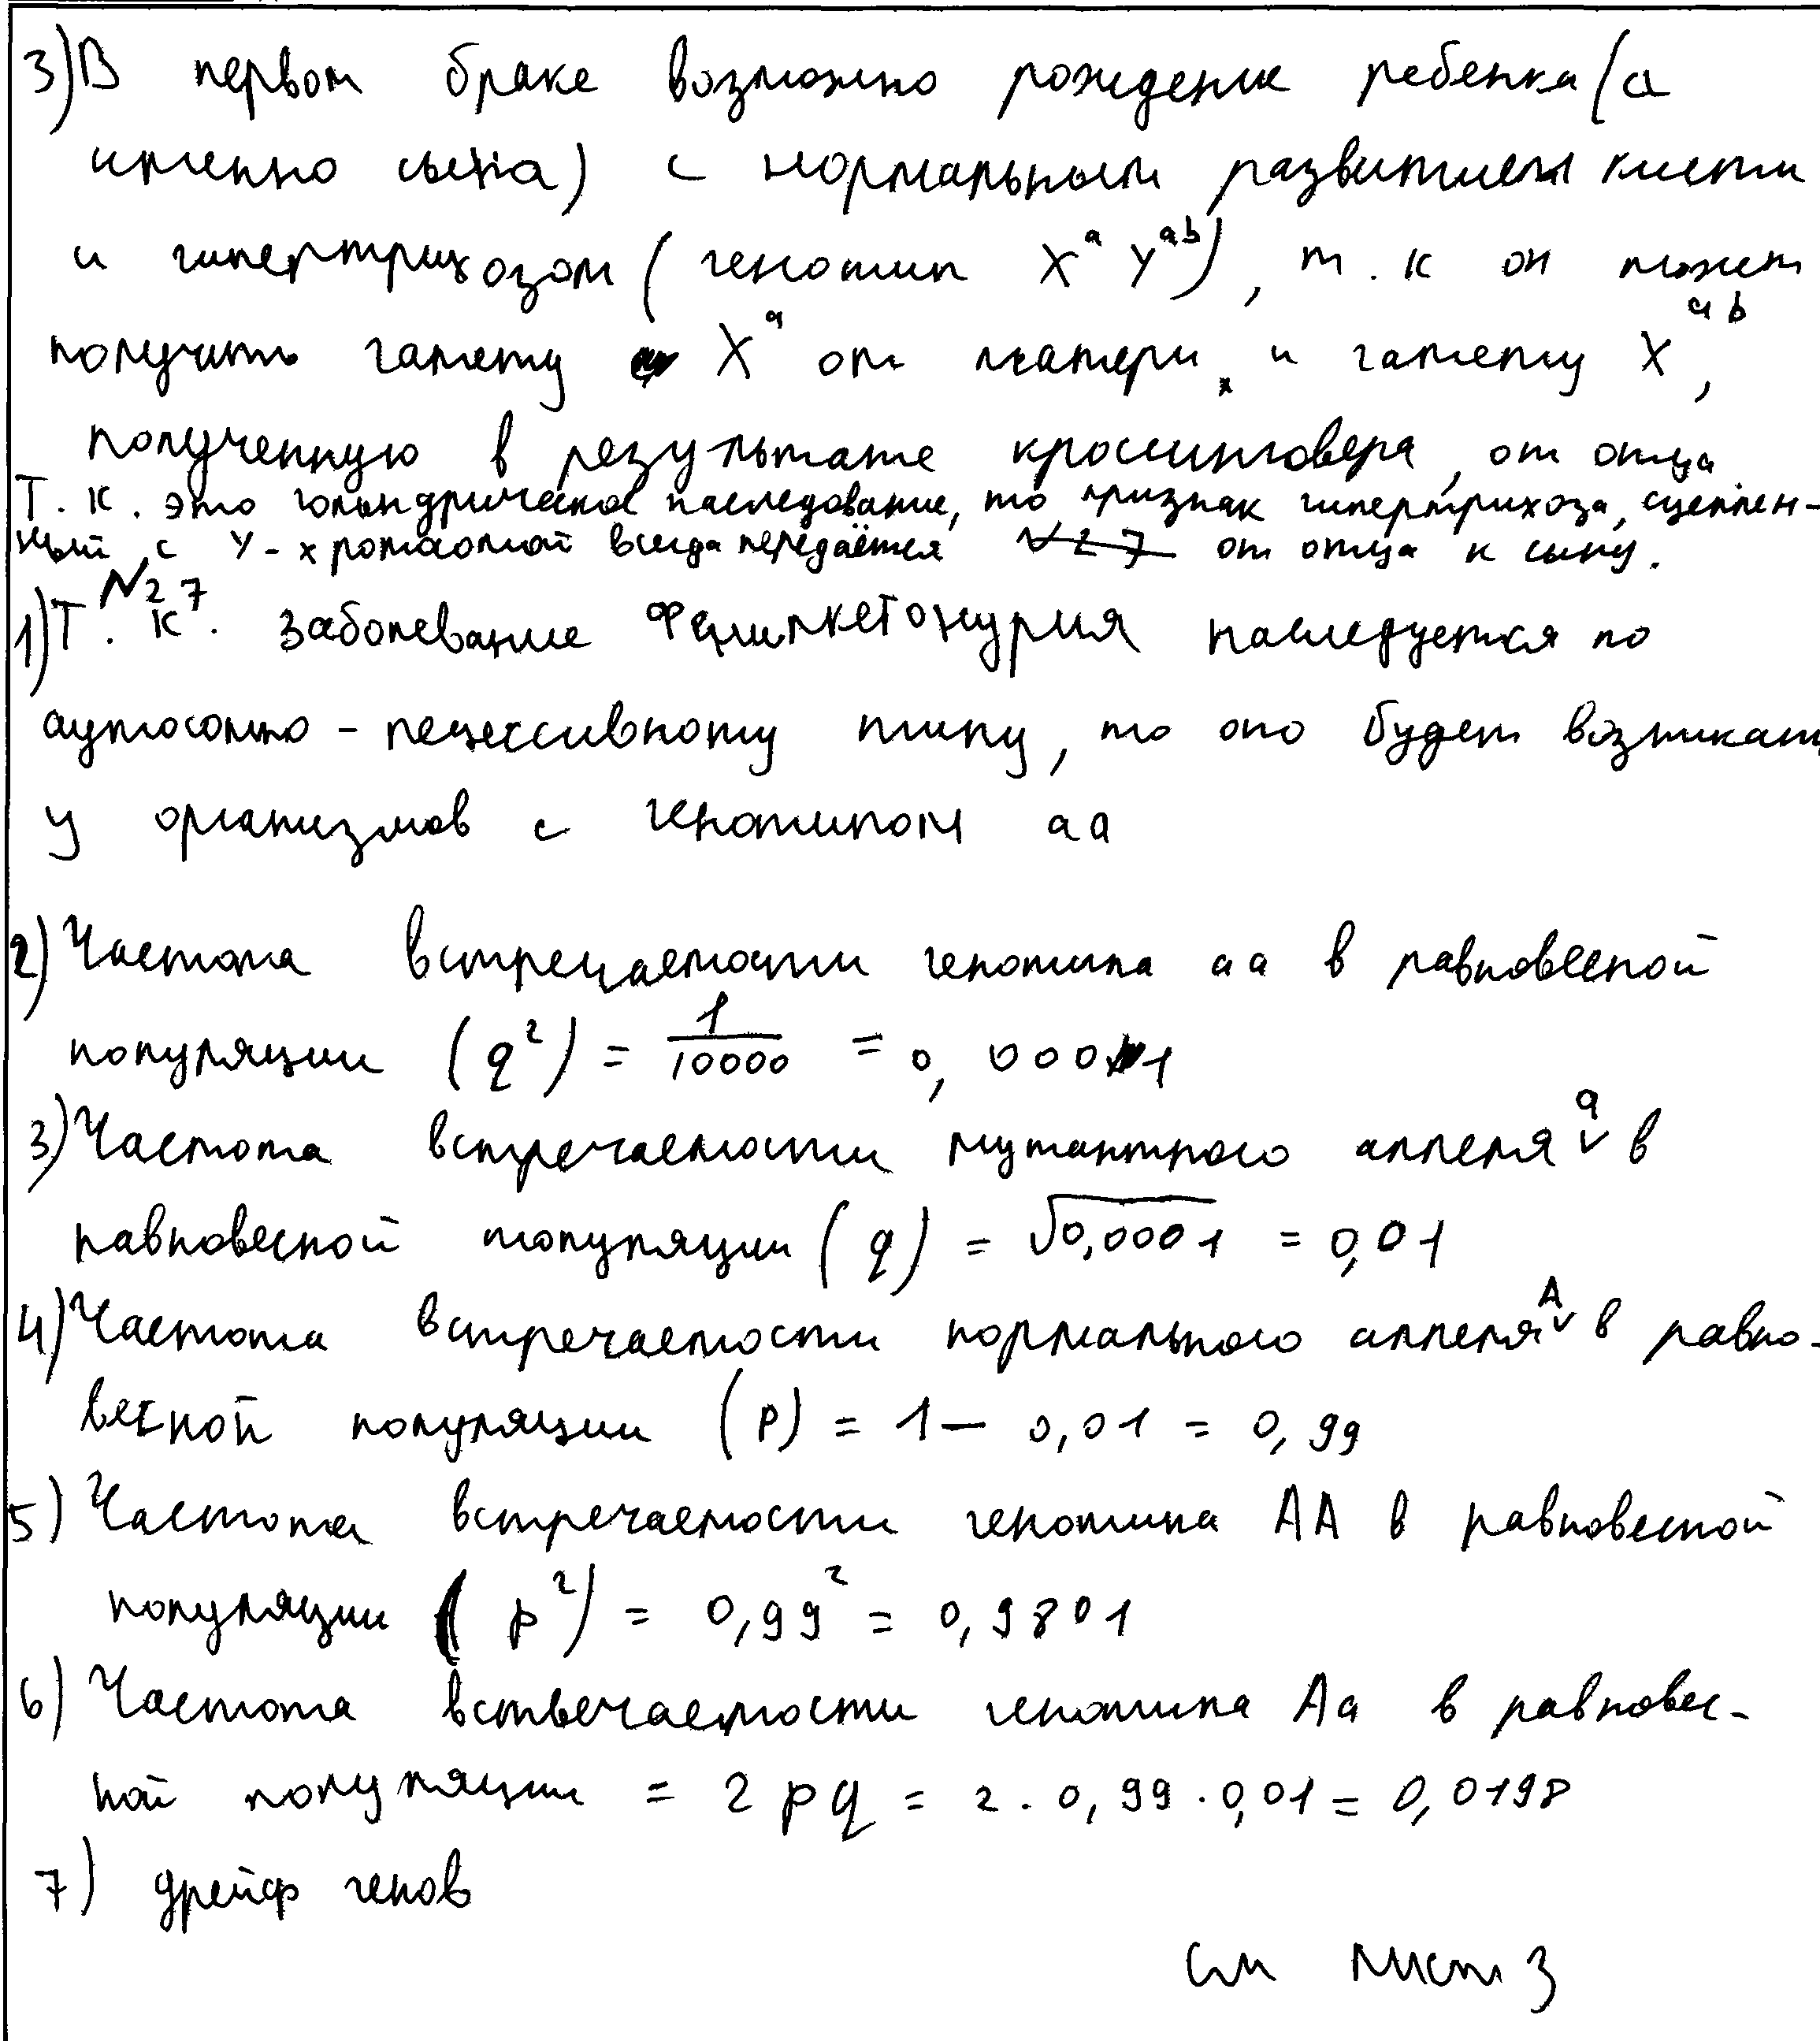 3) В первом браке возможно рождение ребенка (а
именно сына) с нормальным развитием кисти
и гипертрихозом (генотип XᵃYᵃᵇ), т.к он может
получить гамету Xᵃ от матери и гамету Xᵃᵇ,
полученную в результате кроссинговера, от отца
Т.к. это голандрическое наследование, то признак гипертрихоза, сцеплен-
ный с Y-хромосомой всегда передаётся от отца к сыну.
№27
1) Т.к. заболевание Фенилкетонурия наследуется по
аутосомно-рецессивному типу, то оно будет возникать
у организмов с генотипом аа
2) Частота встречаемости генотипа аа в равновесной
популяции (q²) = 1/10000 = 0,0001
3) Частота встречаемости мутантного аллеля а в
равновесной популяции (q) = √0,0001 = 0,01
4) Частота встречаемости нормального аллеля А в равно-
весной популяции (p) = 1 - 0,01 = 0,99
5) Частота встречаемости генотипа АА в равновесной
популяции (p²) = 0,99² = 0,9801
6) Частота вствечаемости генотипа Аа в равновес-
ной популяции = 2pq = 2 · 0,99 · 0,01 = 0,0198
7) дрейф генов
см лист 3